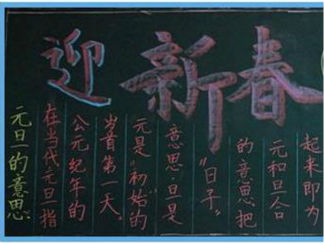 迎新春
元旦的意思
在当代元旦指
公元纪年的
岁首第一天。
元是“初始”的
意思.旦是
“日子”
的意思.把
元和旦合
起来即为